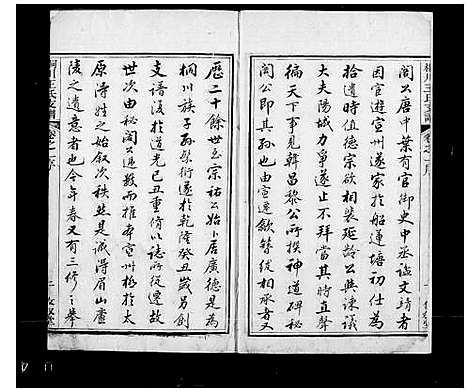 閤公唐中葉有官御史中丞諡文靖者
因官遊宣州遂家於船蓮塘初仕為
拾遺時值德宗欲相裴延齡公與諫議
大夫陽城力爭遂止不拜當其時直聲
徧天下嘗見韓昌黎公所撰神道碑秘
閣公即其孫也由宣遷歙禁從相承者又
歷二十餘世至宗祐公始卜居廣德是為
桐川族子孫縈衍遂於乾隆癸丑歲另創
支譜復於道光己丑重脩以誌所從遷故
世次由秘閣公遞數而推本宣州極於太
原得姓之始叙次秩然是誠得眉山廬
陵之遺意者也今年春又有三修之舉